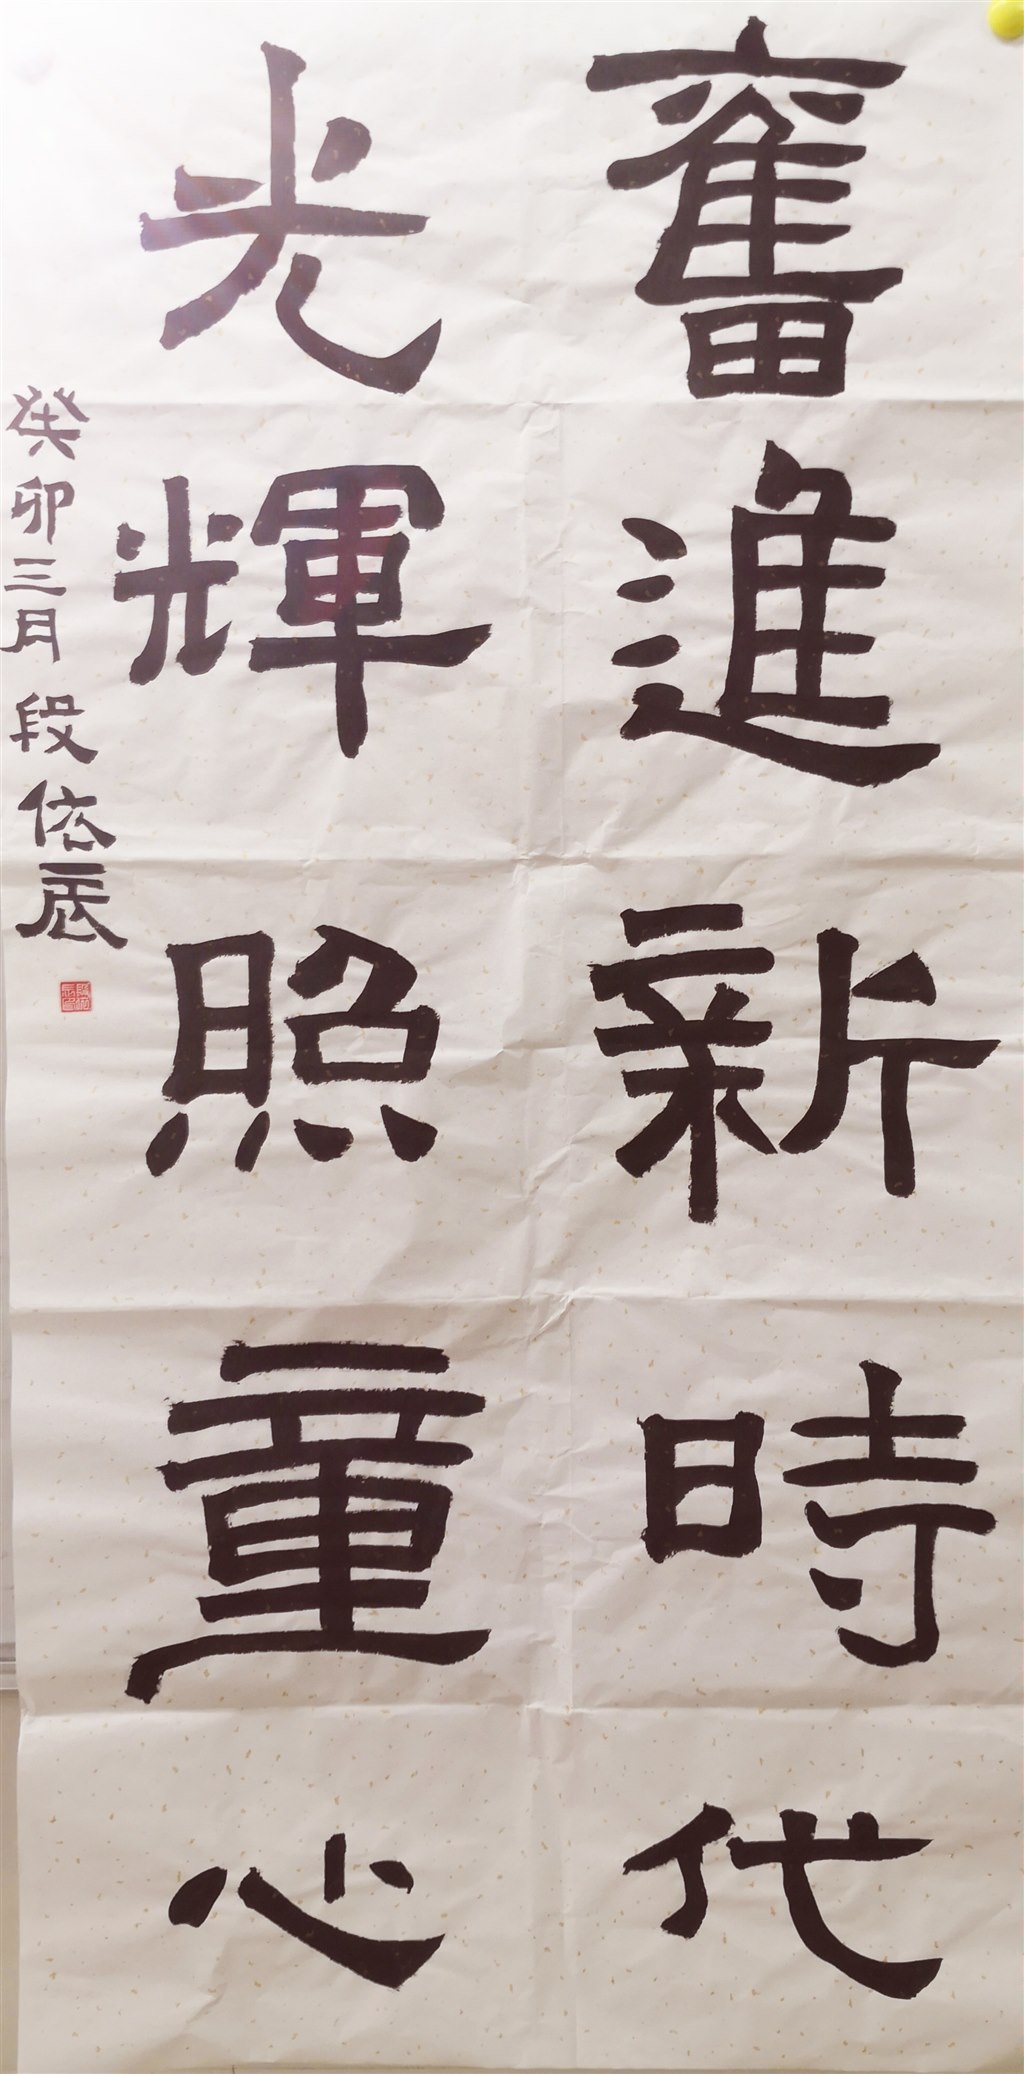 奮進新時代
光輝照童心
癸卯三月段依辰